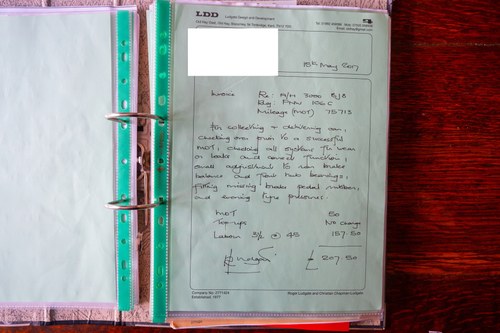 LDD Ludgate Design and Development
15th May 2017
Invoice Re: A/H 3000 BJ8
Reg
Mileage (MOT) 75713
For collecting & delivering car,
checking over prior to a successful
MOT; checking all systems for wear
or leaks and correct function;
small adjustment to rear brake
balance and front hub bearings;
fitting missing brake pedal rubber,
and evening tyre pressures.
MOT 50
Top-ups No charge
Labour 3½ @ 45 157.50
£ 207.50
Company No.
Established 1977